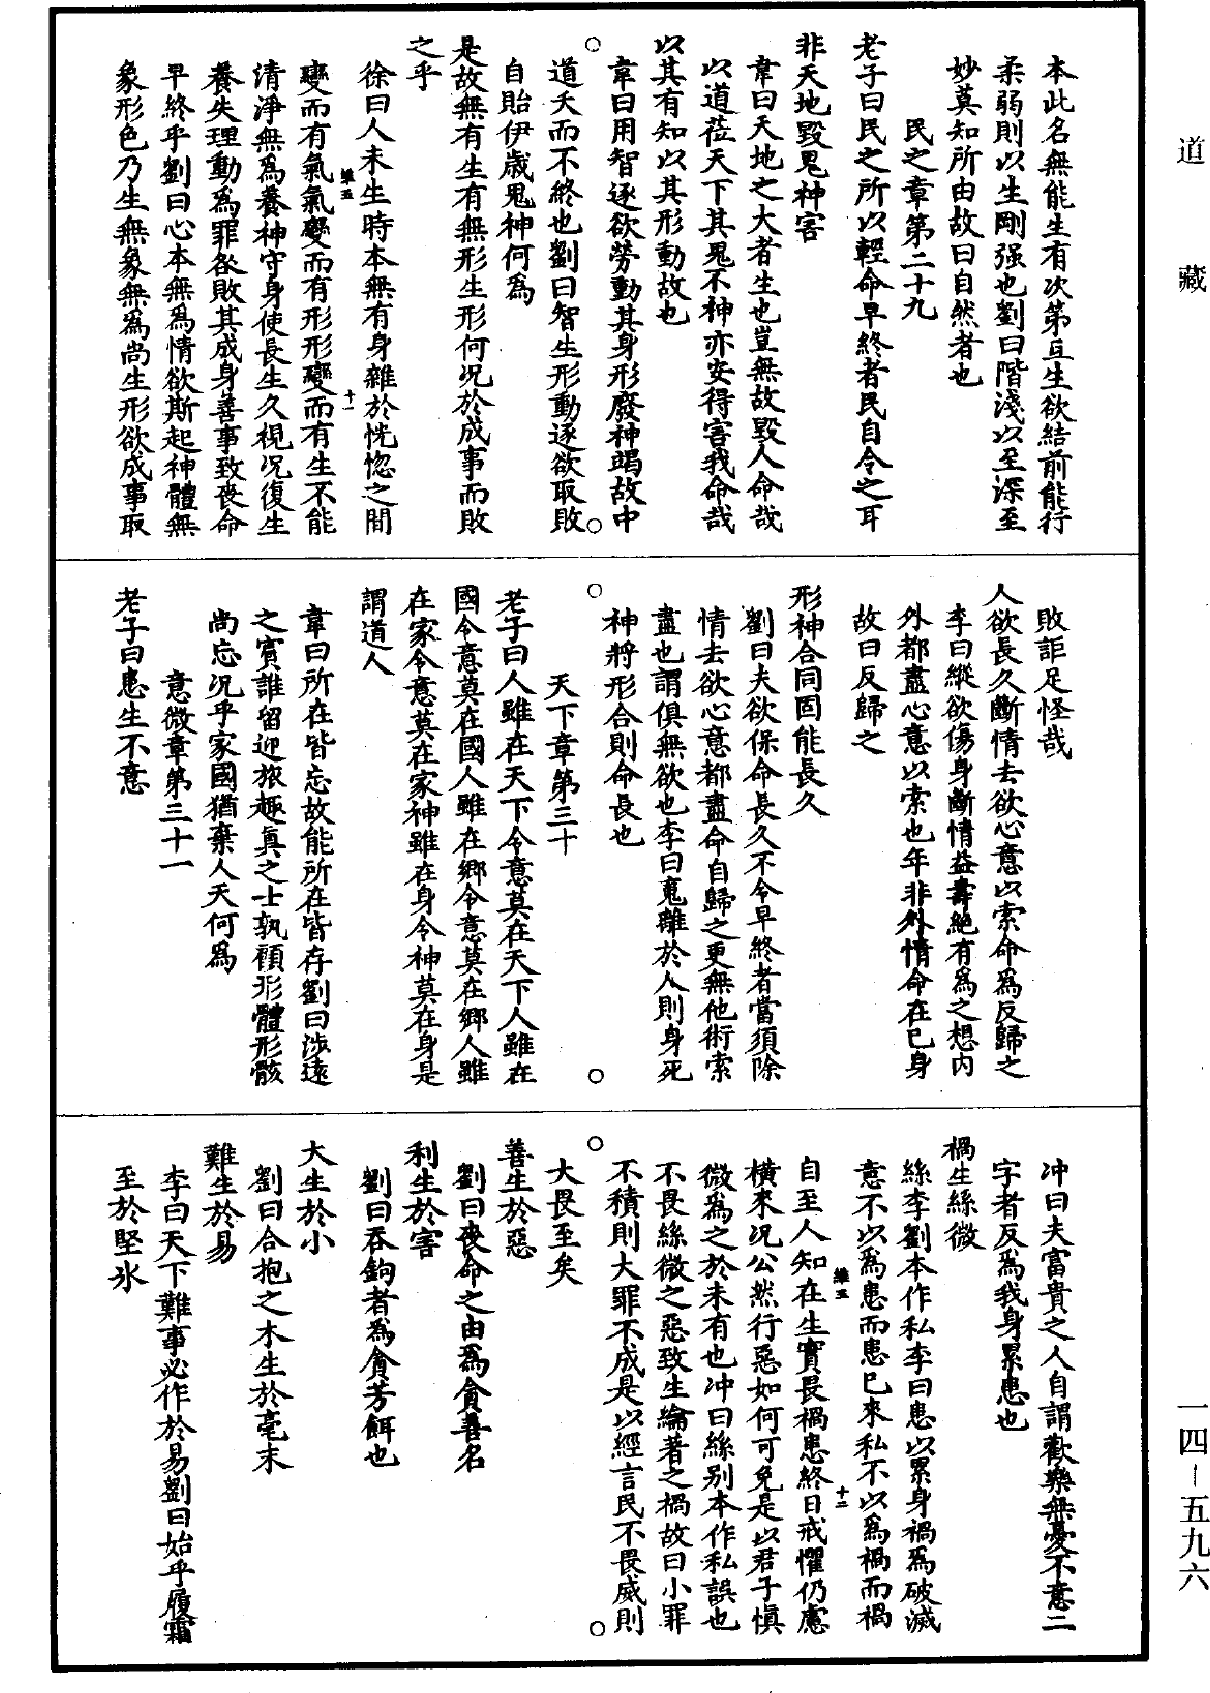 本此名無能生有次第亙生欲結前能行
柔弱則以生剛强也劉曰階淺以至深至
妙莫知所由故曰自然者也
民之章第二十九
老子曰民之所以輕命早終者民自令之耳
非天地毀鬼神害
韋曰天地之大者生也豈無故毀人命哉
以道莅天下其鬼不神亦安得害我命哉
以其有知以其形動故也
韋曰用智逐欲勞動其身形廢神竭故中
道夭而不終也劉曰智生形動逐欲取敗
自貽伊歲鬼神何爲
是故無有生有無形生形何况於成事而敗
之乎
徐曰人未生時本無有身雜於恍惚之間
變而有氣氣變而有形形變而有生不能
清淨無爲養神守身使長生久視况復生
養失理動爲罪咎敗其成身善事致喪命
早終乎劉曰心本無爲情欲斯起神體無
象形色乃生無象無爲尚生形欲成事取
敗詎足怪哉
人欲長久斷情去欲心意以索命爲反歸之
李曰縱欲傷身斷情益壽絶有爲之想内
外都盡心意以索也年非外情命在已身
故曰反歸之
形神合同固能長久
劉曰夫欲保命長久不令早終者當須除
情去欲心意都盡命自歸之更無他術索
盡也謂俱無欲也李曰䰟離於人則身死
神將形合則命長也
天下章第三十
老子曰人雖在天下令意莫在天下人雖在
國令意莫在國人雖在鄉令意莫在鄉人雖
在家令意莫在家神雖在身令神莫在身是
謂道人
韋曰所在皆忘故能所在皆存劉曰涉遠
之賓誰留迎旅趣真之士孰顧形體形骸
尚忘况乎家國猶棄人天何爲
意微章第三十一
老子曰患生不意
冲曰夫富貴之人自謂歡樂無憂不意二
字者反爲我身累患也
禍生絲微
絲李劉本作私李曰患以累身禍爲破滅
意不以爲患而患已來私不以爲禍而禍
自至人知在生實畏禍患終日戒懼仍慮
橫來况公然行惡如何可免是以君子愼
微爲之於未有也冲曰絲别本作私誤也
不畏絲微之惡致生綸著之禍故曰小罪
不積則大罪不成是以經言民不畏威則
大畏至矣
善生於惡
劉曰喪命之由爲貪善名
利生於害
劉曰吞鉤者爲貪芳餌也
大生於小
劉曰合抱之木生於毫末
難生於易
李曰天下難事必作於易劉曰始乎履霜
至於堅氷
維五
十一
維五
十二
道藏
一四-五九六